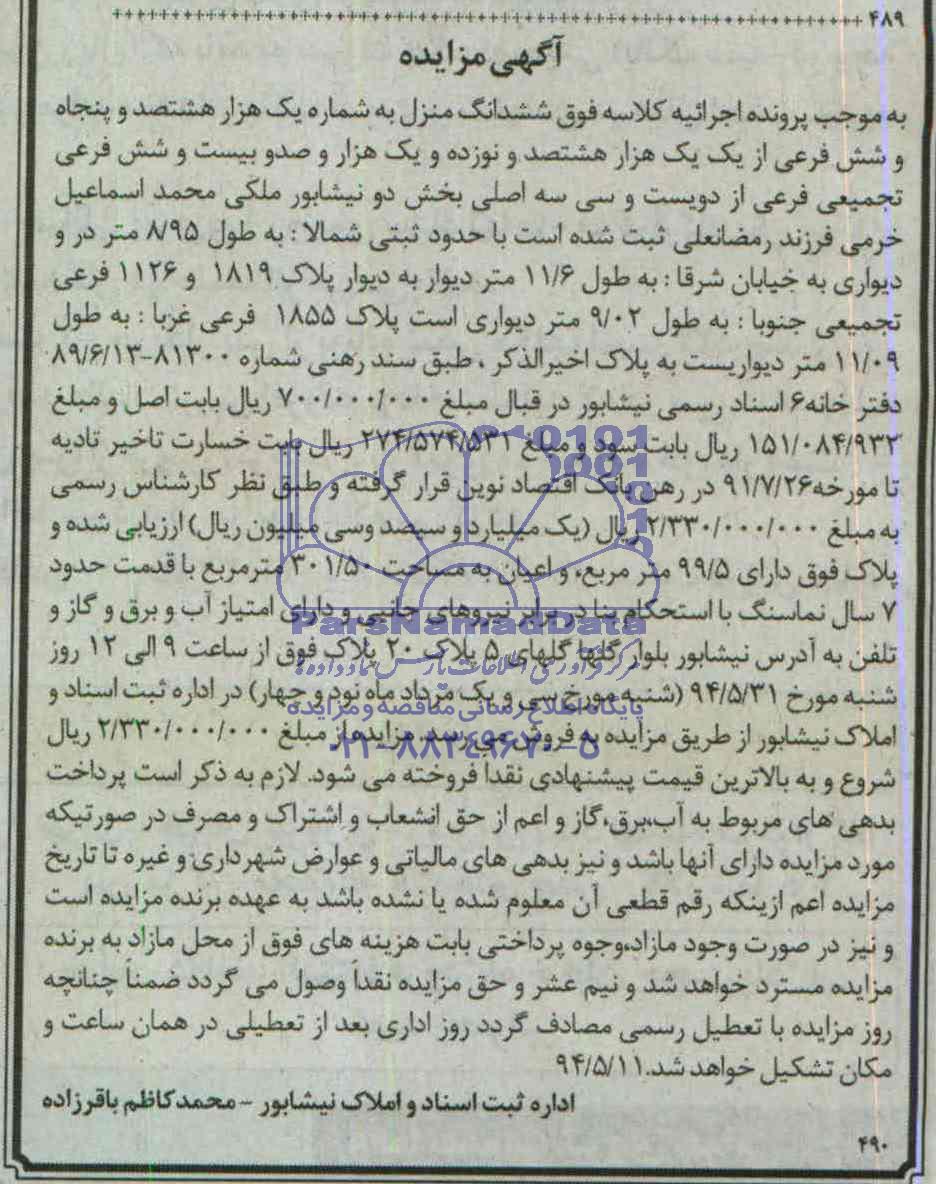 ۴۸۹
آگهی مزایده
به موجب پرونده اجرائیه کلاسه فوق ششدانگ منزل به شماره یک هزار هشتصد و پنجاه
و شش فرعی از یک یک هزار هشتصد و نوزده و یک هزار و صدو بیست و شش فرعی
تجمیعی فرعی از دویست و سی سه اصلی بخش دو نیشابور ملکی محمد اسماعیل
خرمی فرزند رمضانعلی ثبت شده است با حدود ثبتی شمالا : به طول ۸/۹۵ متر در و
دیواری به خیابان شرقا : به طول ۱۱/۶ متر دیوار به دیوار پلاک ۱۸۱۹ و ۱۱۲۶ فرعی
تجمیعی جنوبا : به طول ۹/۰۲ متر دیواری است پلاک ۱۸۵۵ فرعی غربا : به طول
۱۱/۰۹ متر دیواریست به پلاک اخیرالذکر ، طبق سند رهنی شماره ۸۱۳۰۰-۸۹/۶/۱۳
دفتر خانه۶ اسناد رسمی نیشابور در قبال مبلغ ۷۰۰/۰۰۰/۰۰۰ ریال بابت اصل و مبلغ
۱۵۱/۰۸۴/۹۳۲ ریال بابت سود و مبلغ ۲۷۴/۵۷۴/۵۳۱ ریال بابت خسارت تاخیر تادیه
تا مورخه۹۱/۷/۲۶ در رهن بانک اقتصاد نوین قرار گرفته و طبق نظر کارشناس رسمی
به مبلغ ۲/۳۳۰/۰۰۰/۰۰۰ ریال (یک میلیارد و سیصد وسی میلیون ریال) ارزیابی شده و
پلاک فوق دارای ۹۹/۵ متر مربع، و اعیان به مساحت ۳۰۱/۵۰ مترمربع با قدمت حدود
۷ سال نماسنگ با استحکام بنا در برابر نیروهای جانبی و دارای امتیاز آب و برق و گاز و
تلفن به آدرس نیشابور بلوار گلها گلهای ۵ پلاک ۲۰ پلاک فوق از ساعت ۹ الی ۱۲ روز
شنبه مورخ ۹۴/۵/۳۱ (شنبه مورخ سی و یک مرداد ماه نود و چهار) در اداره ثبت اسناد و
املاک نیشابور از طریق مزایده به فروش می رسد. مزایده از مبلغ ۲/۳۳۰/۰۰۰/۰۰۰ ریال
شروع و به بالاترین قیمت پیشنهادی نقدا فروخته می شود. لازم به ذکر است پرداخت
بدهی های مربوط به آب،برق،گاز و اعم از حق انشعاب و اشتراک و مصرف در صورتیکه
مورد مزایده دارای آنها باشد و نیز بدهی های مالیاتی و عوارض شهرداری و غیره تا تاریخ
مزایده اعم ازینکه رقم قطعی آن معلوم شده یا نشده باشد به عهده برنده مزایده است
و نیز در صورت وجود مازاد،وجوه پرداختی بابت هزینه های فوق از محل مازاد به برنده
مزایده مسترد خواهد شد و نیم عشر و حق مزایده نقداً وصول می گردد ضمناً چنانچه
روز مزایده با تعطیل رسمی مصادف گردد روز اداری بعد از تعطیلی در همان ساعت و
مکان تشکیل خواهد شد.۹۴/۵/۱۱
اداره ثبت اسناد و املاک نیشابور - محمدکاظم باقرزاده
۴۹۰
ParsNamadData
مرکز فرآوری اطلاعات پارس نماد داده ها
پایگاه اطلاع رسانی مناقصه و مزایده
۰۲۱-۸۸۳۴۹۶۷۰-۵